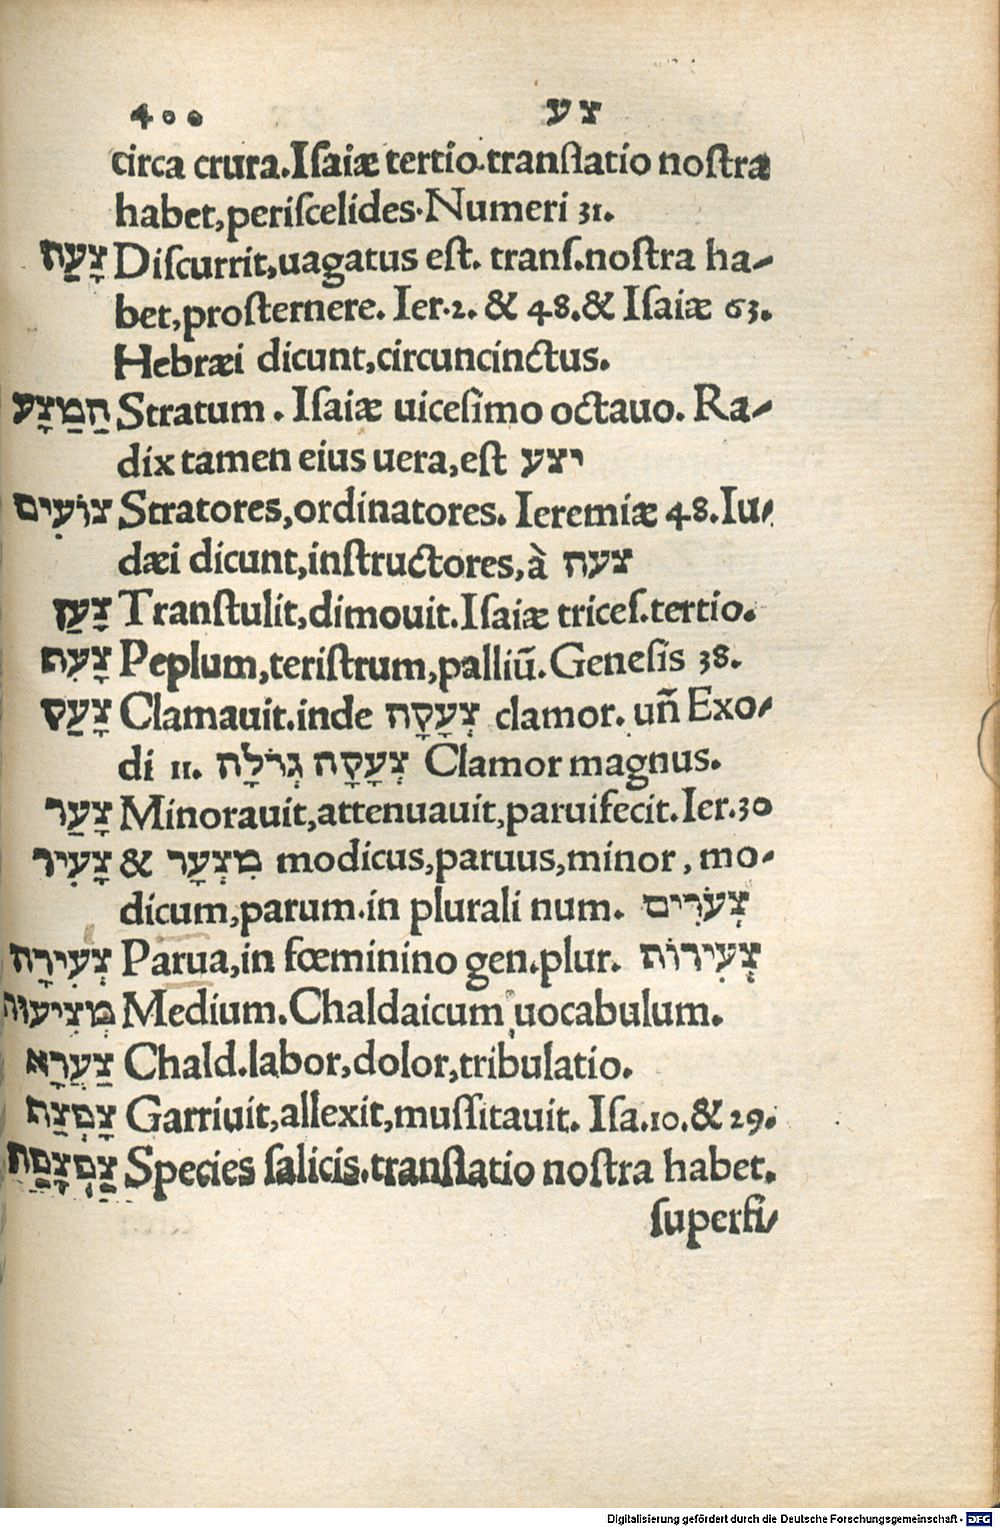 400 צע
circa crura.Iſaiæ tertio.tranſlatio noſtra
habet,periſcelides.Numeri 31.
צָעַה Diſcurrit,uagatus eſt. tranſ.noſtra ha-
bet,proſternere. Ier.2. & 48.& Iſaiæ 63.
Hebræi dicunt,circuncinctus.
הַמַצָע Stratum. Iſaiæ uiceſimo octauo. Ra-
dix tamen eius uera,eſt יצע
צוֹעִים Stratores,ordinatores. Ieremiæ 48.Iu-
dæi dicunt,inſtructores,à צעה
צָעַן Tranſtulit,dimouit.Iſaiæ triceſ.tertio.
Peplum,teriſtrum,palliū.Geneſis 38.
צָעַק Clamauit.inde צְעָקָה clamor. uñ Exo-
di 11. צְעָקָה גְרֹלָה Clamor magnus.
צָעַר Minorauit,attenuauit,paruifecit.Ier.30
צָעִיר & מִצְעָר modicus,paruus,minor, mo-
dicum,parum.in plurali num. צְעֹרִים
צְעִירָה Parua,in fœminino gen.plur. צְעִירוֹת
Medium.Chaldaicum uocabulum.
צַעֲרָא Chald.labor,dolor,tribulatio.
Garriuit,allexit,muſſitauit. Iſa.10.& 29.
Species ſalicis.tranſlatio noſtra habet.
ſuperfi-
Digitalisierung gefördert durch die Deutsche Forschungsgemeinschaft - DFG